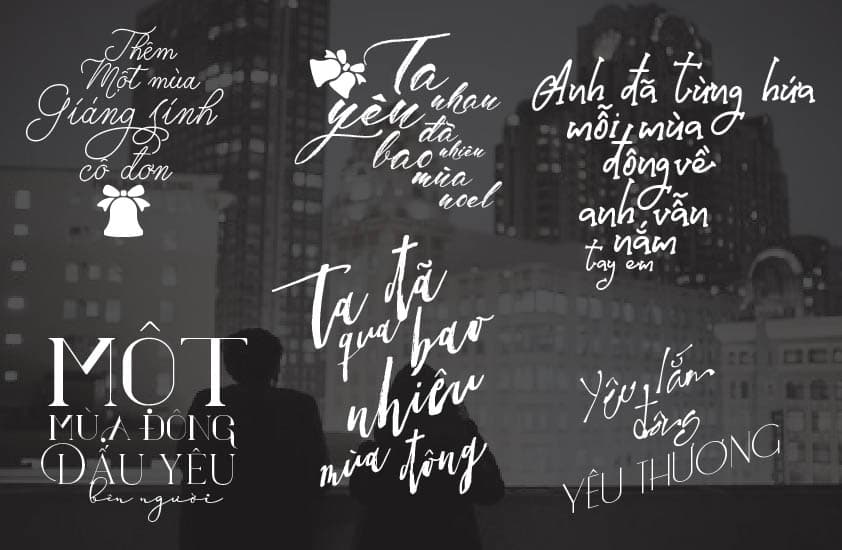 Thêm
Một mùa
Giáng sinh
cô đơn
Ta
yêu nhau
đã
bao nhiêu
mùa
noel
Anh đã từng hứa
mỗi mùa
đông về
anh vẫn
nắm
tay em
MỘT
MÙA ĐÔNG
DẤU YÊU
bên người
Ta đã
qua bao
nhiêu
mùa đông
Yêu lắm
đông
YÊU THƯƠNG